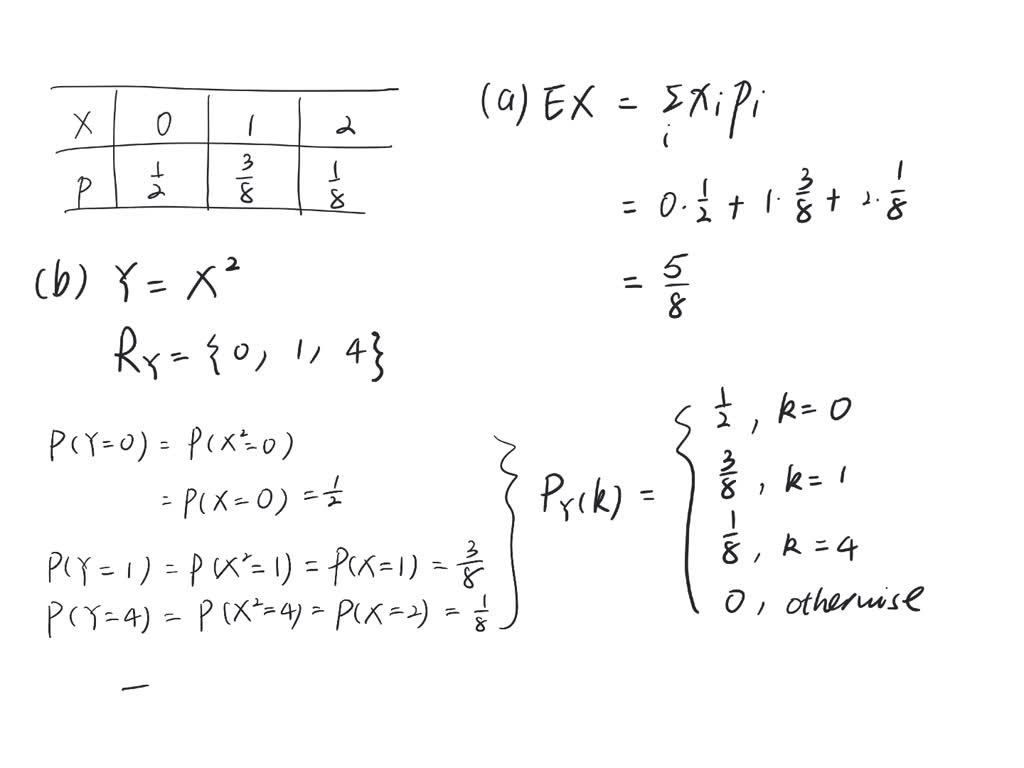 X 0 1 2
P 1/2 3/8 1/8
(a) EX = Σ_i x_i p_i
= 0·1/2 + 1·3/8 + 2·1/8
= 5/8
(b) Y = X²
R_Y = {0, 1, 4}
P(Y=0) = P(X²=0)
= P(X=0) = 1/2
P(Y=1) = P(X²=1) = P(X=1) = 3/8
P(Y=4) = P(X²=4) = P(X=2) = 1/8
P_Y(k) = {
1/2, k=0
3/8, k=1
1/8, k=4
0, otherwise